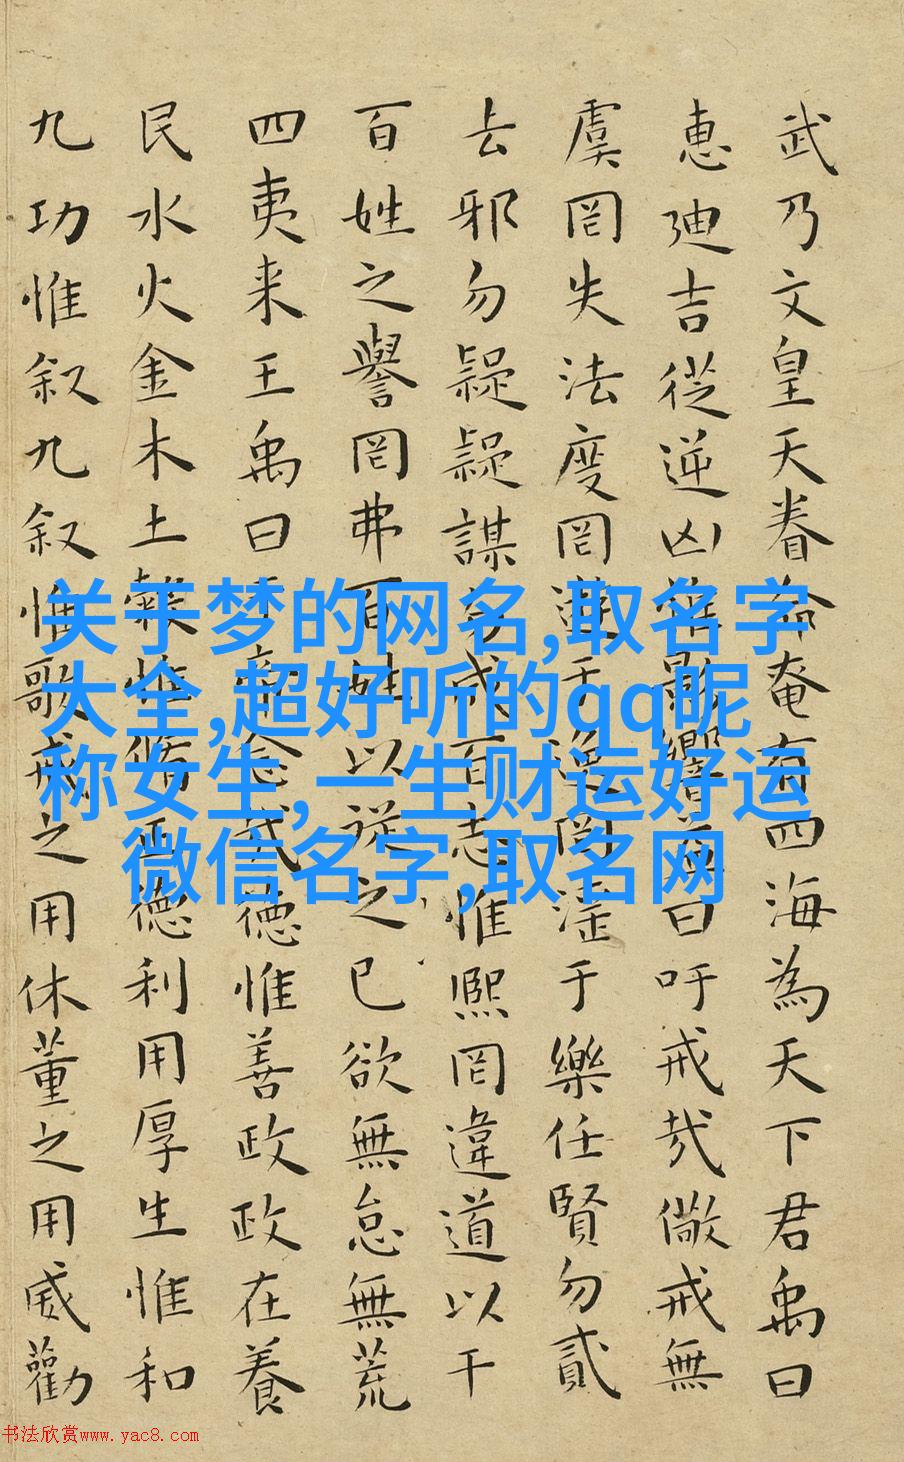 武乃文皇天眷命奄有四海為天下君禹曰
惠迪吉從逆凶惟影響益曰吁戒哉儆戒無
虞罔失法度罔遊于逸罔淫于樂任賢勿貳
去邪勿疑疑謀勿成百志惟熙罔違道以干
百姓之譽罔弗百姓以從之己欲無怠無荒
四夷来王禹曰帝念哉德惟善政政在養
民水火金木土穀惟脩正德利用厚生惟和
九功惟叙九叙惟歌戒之用休董之用威勸
关于梦的网名,取名字
大全,超好听的qq昵
称女生,一生财运好运
微信名字,取名网
书法欣赏www.yac8.com